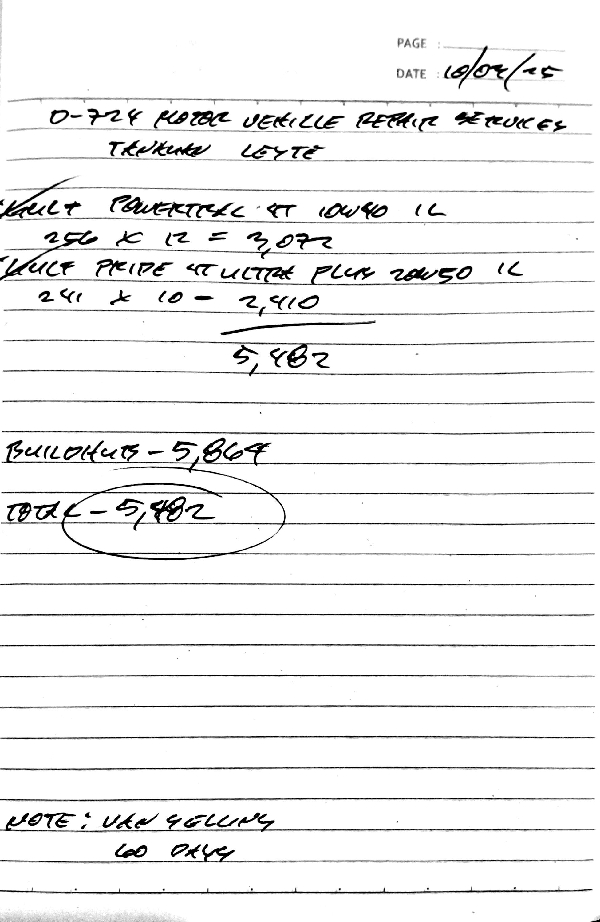 PAGE :
DATE : 10/04/25
O-724 MOTOR VEHICLE REPAIR SERVICES
TANAUAN LEYTE
VAULT POWERTRAC 4T 10W40 1L
256 X 12 = 3,072
VAULT PRIDE 4T ULTRA PLUS 20W50 1L
241 X 10 - 2,410
5,482
BUILDHUB - 5,864
TOTAL - 5,482
NOTE : VAN SELLING
60 DAYS